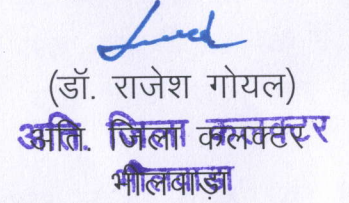 (डॉ. राजेश गोयल)
अति. जिला कलक्टर
भीलवाड़ा